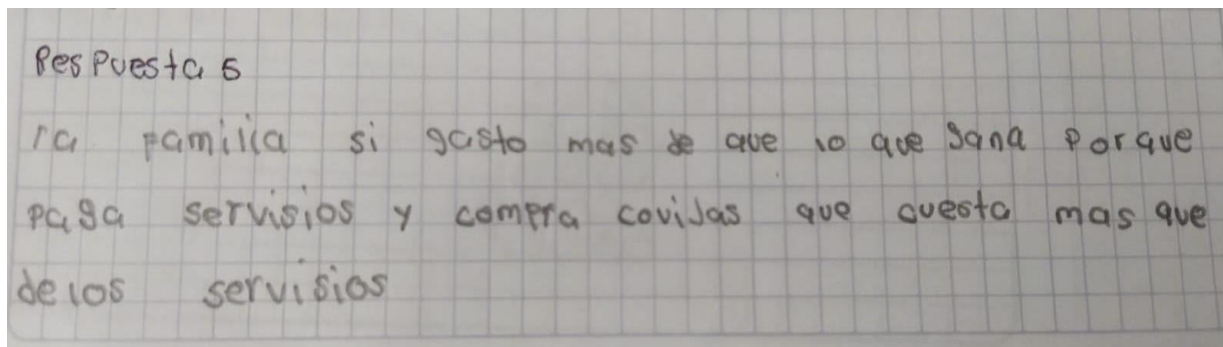 Respuesta 5
la pamilia si gasto mas de que lo que gana porque
paga servisios y compra covijas que cuesta mas que
de los servisios